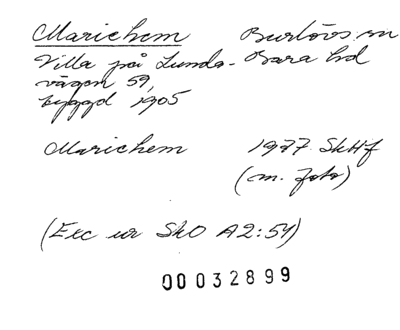 Marichem Burlövs sn
Villa på Lunda- Bara hd
vägen 59,
byggd 1905
Marichem 1977 SkHf
(m. foto)
(Exc ur SkO A2:54)
00032899